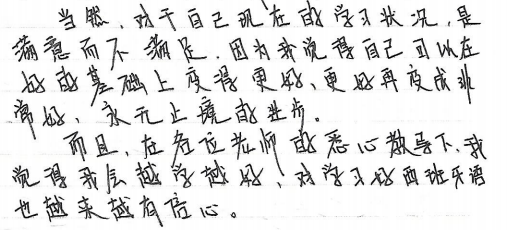 当然，对于自己现在的学习状况，是
满意而不满足，因为我觉得自己可以在
好的基础上变得更好、更好再变成非
常好，永无止境的进步。
而且，在各位老师的悉心教导下，我
觉得我会越学越好，对学习好西班牙语
也越来越有信心。